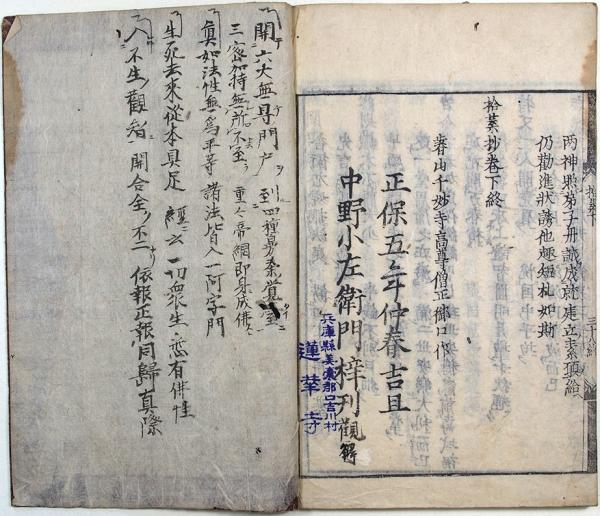 両神照弟子丹誠成就建立素願給
仍勧進状誘他趣短札如斯
拾葉抄巻下終
春山千妙寺高尊僧正御口作
正保五年仲春吉旦
中野小左衛門梓刊
観解
兵庫縣美嚢郡口吉川村
蓮華寺
開六大無㝵門戸
到四種曼荼覚室
三密加持無所不至
重々帝網即身成佛
真如法性無為平等
諸法皆入一阿字門
生死去來從本具足
経云一切衆生悉有佛性
入不生觀智開合全不二
依報正報同歸真際